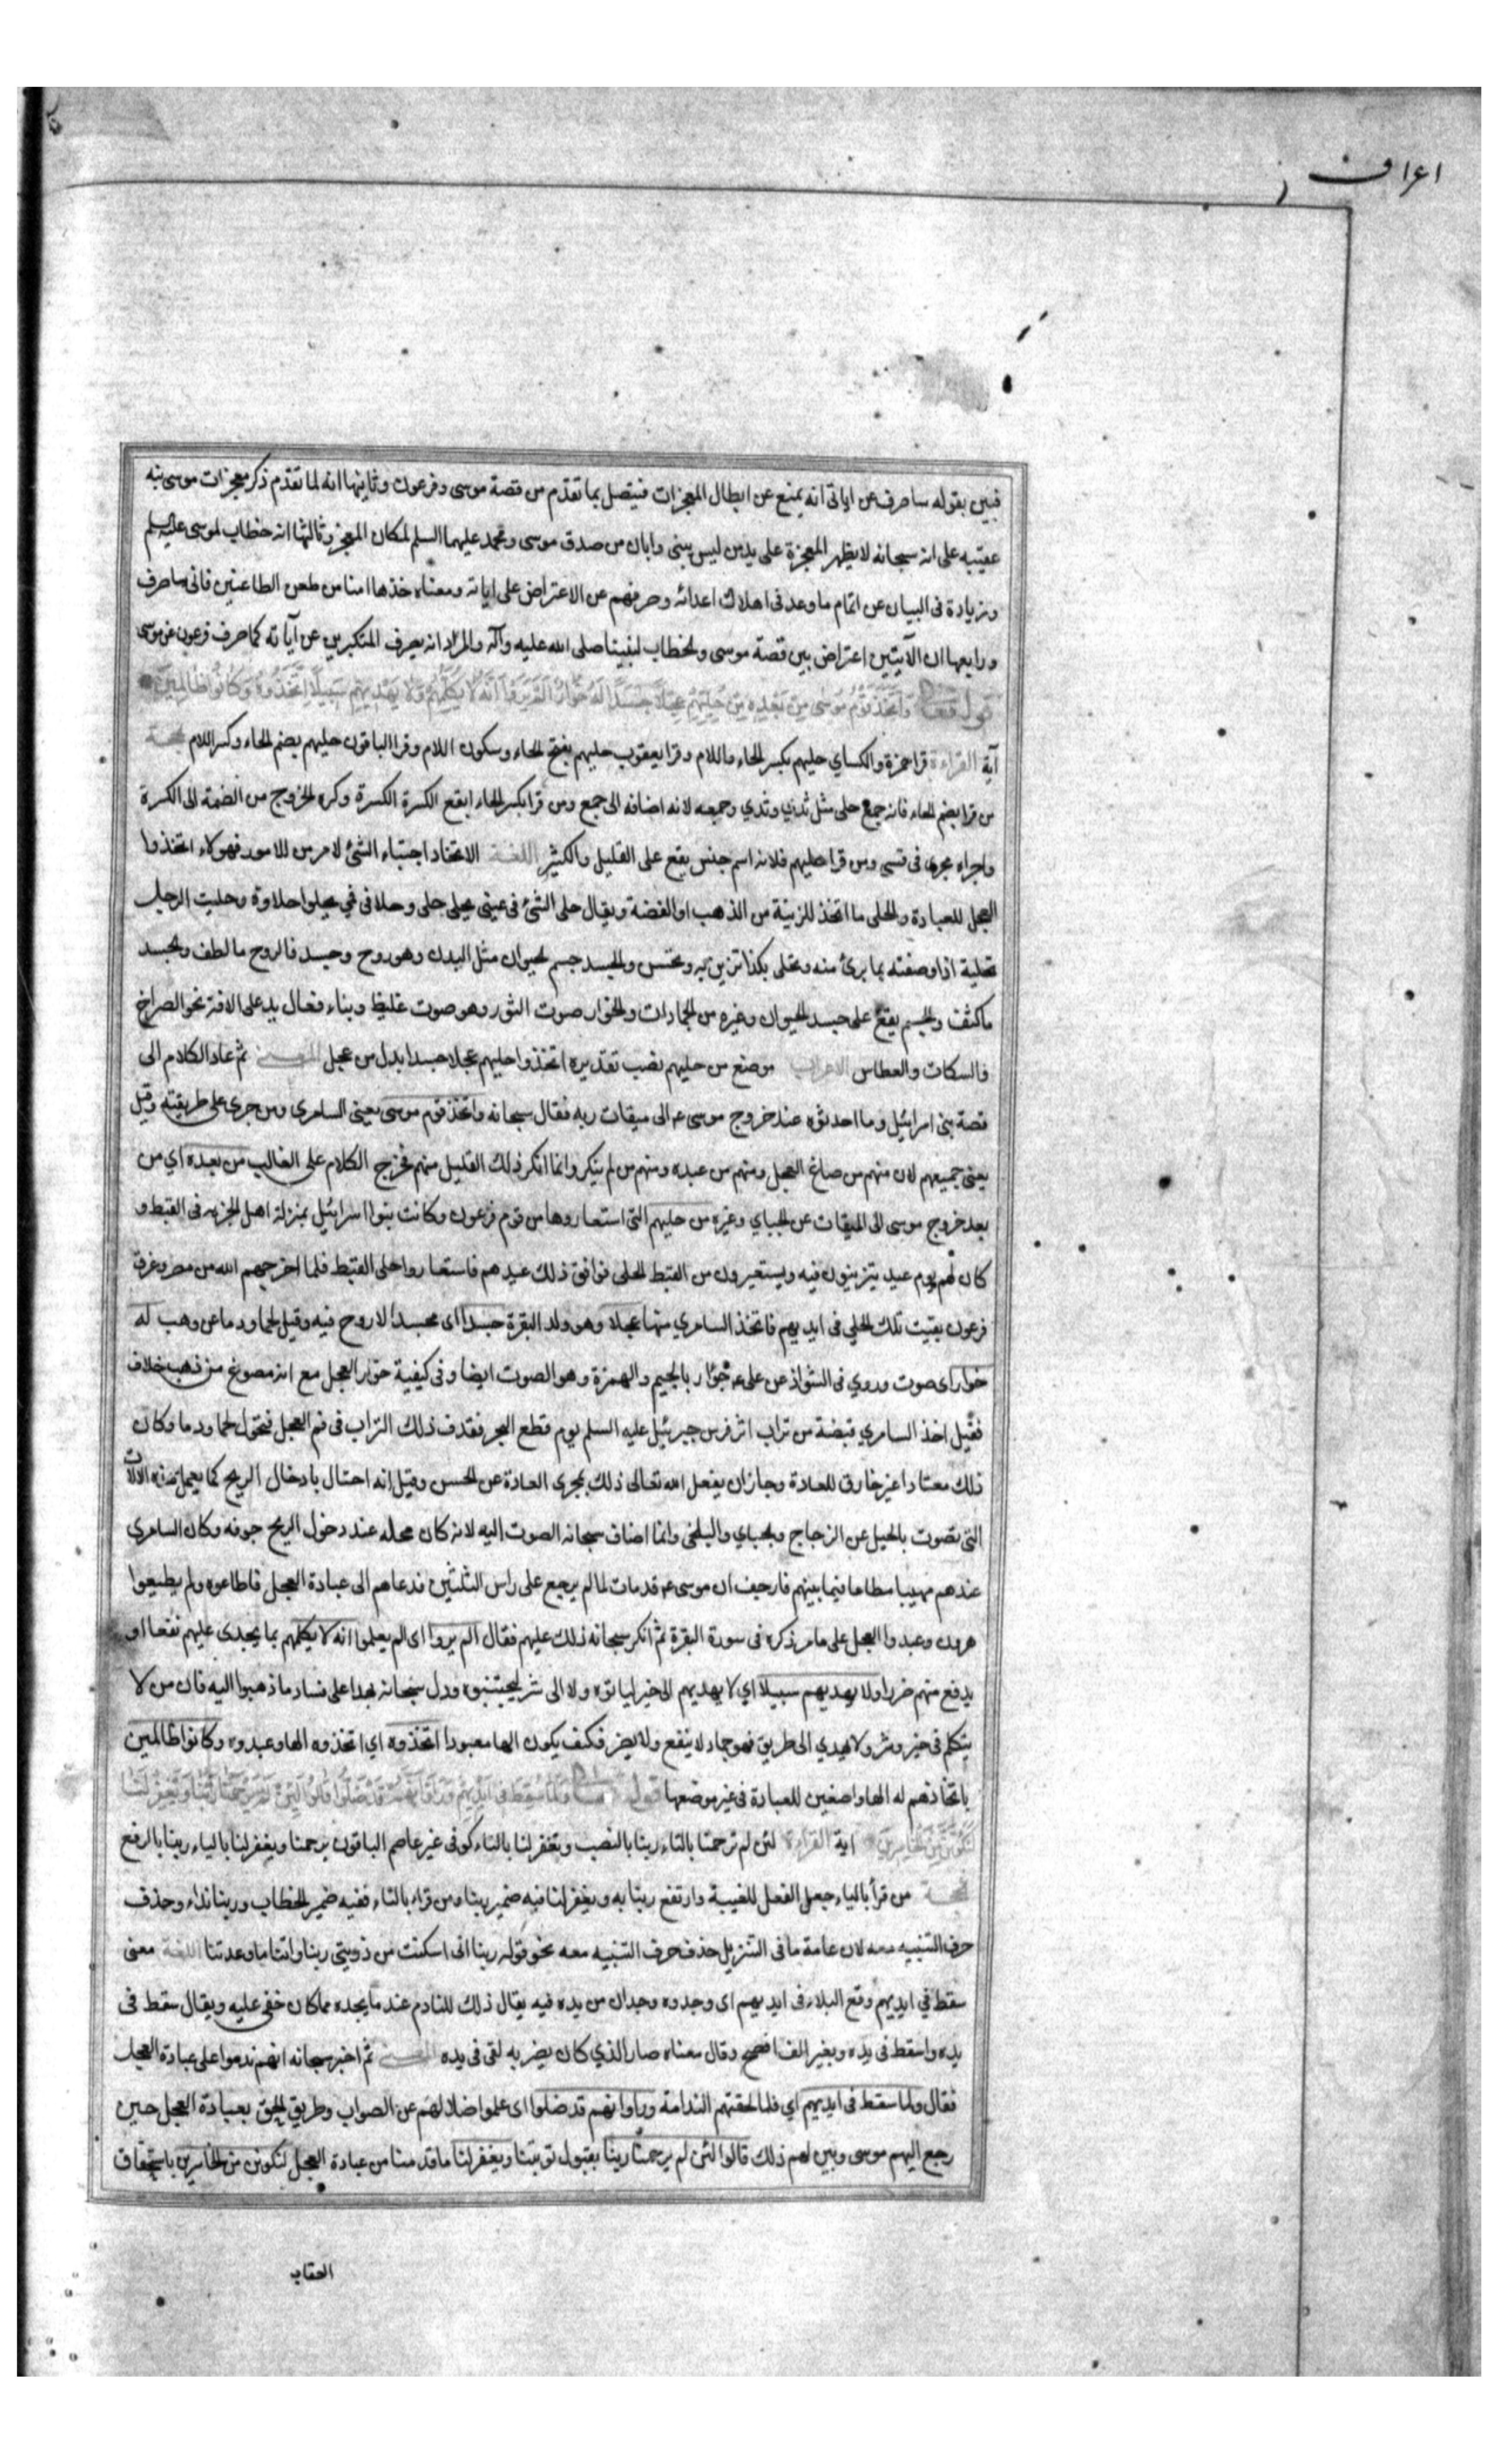 اعراف
فبين بقوله ساصرف عن اياتى انه يمنع عن ابطال المعجزات فيتصل بما تقدم من قصة موسى وفرعون وثانيها انه لما تقدم ذكر معجزات موسى نبه
عقيبه على انه سبحانه لا يظهر المعجزة على يد من ليس بنبى وابان من صدق موسى ومحمد عليهما السلم لمكان المعجز وثالثها انه خطاب لموسى عليه السلم
وزيادة فى البيان عن اتمام ما وعد فى اهلاك اعدائه وصرفهم عن الاعتراض على اياته ومعناه خذها امنا من طعن الطاعنين فانى ساصرف
ورابعها ان الآيتين اعتراض بين قصة موسى والخطاب لنبينا صلى الله عليه وآله والمراد انه يصرف المتكبرين عن آياته كما صرف فرعون عن موسى
قوله تعالى وَاتَّخَذَ قَوْمُ مُوسَى مِنْ بَعْدِهِ مِنْ حُلِيِّهِمْ عِجْلًا جَسَدًا لَهُ خُوَارٌ اَلَمْ يَرَوْا اَنَّهُ لَا يُكَلِّمُهُمْ وَلَا يَهْدِيهِمْ سَبِيلًا اتَّخَذُوهُ وَكَانُوا ظَالِمِينَ
آية القراءة قرا حمزة والكساي حليهم بكسر الحاء واللام وقرا يعقوب حليهم بفتح الحاء وسكون اللام وقرا الباقون حليهم بضم الحاء وكسر اللام الحجة
من قرا بضم الحاء فانه جمع حلى مثل ثدي وثدي وجمعه لانه اضافه الى جمع ومن قرا بكسر الحاء اتبع الكسرة الكسرة وكره الخروج من الضمة الى الكسرة
واجراه مجرى قسى ومن قرا حليهم فلانه اسم جنس يقع على القليل والكثير اللغة الاتخاذ اجتباء الشئ لامر من الامور فهولاء اتخذوا
العجل للعبادة والحلى ما اتخذ للزينة من الذهب او الفضة ويقال حلى الشئ فى عينى يحلى حلى وحلا فى فمي يحلوا حلاوة وحليت الرجل
تحلية اذا وصفته بما يرى منه وتحلى بكذا تزين به وتحسن والجسد جسم الحيوان مثل البدن وهو روح وجسد فالروح ما لطف والجسد
ما كثف والجسم يقع على جسد الحيوان وغيره من الجمادات والخوار صوت الثور وهو صوت غليظ وبناء فعال يدل على الافة نحو الصراخ
والسكات والعطاس الاعراب موضع من حليهم نصب تقديره اتخذوا حليهم عجلا جسدا بدل من عجل المعنى ثم عاد الكلام الى
قصة بنى اسرائيل وما احدثوه عند خروج موسى ع الى ميقات ربه فقال سبحانه واتخذ قوم موسى يعنى السامرى ومن جرى على طريقته وقيل
يعنى جميعهم لان منهم من صاغ العجل ومنهم من عبده ومنهم من لم ينكر وانما انكر ذلك القليل منهم فخرج الكلام على الغالب من بعده اي من
بعد خروج موسى الى الميقات عن الجباي وغيره من حليهم التى استعاروها من قوم فرعون وكانت بنوا اسرائيل بمنزلة اهل الجزيه فى القبط و
كان لهم يوم عيد يتزينون فيه ويستعيرون من القبط الحلى فوافق ذلك عيدهم فاستعاروا حلى القبط فلما اخرجهم الله من مصر وغرق
فرعون بقيت تلك الحلي فى ايديهم فاتخذ السامري منها عجلا وهو ولد البقرة جسدا اى مجسدا لا روح فيه وقيل لحما ودما عن وهب له
خوار اى صوت وروي فى الشواذ عن على ع جؤار بالجيم والهمزة وهو الصوت ايضا وفى كيفية خوار العجل مع انه مصوغ من ذهب خلاف
فقيل اخذ السامري قبضة من تراب اثر فرس جبرئيل عليه السلم يوم قطع البحر فقذف ذلك التراب فى فم العجل فتحول لحما ودما وكان
ذلك معتادا غير خارق للعادة وجاز ان يفعل الله تعالى ذلك بمجرى العادة عن الحسن وقيل انه احتال بادخال الريح كما يعمل هذه الالات
التى تصوت بالحيل عن الزجاج والجباي والبلخى وانما اضاف سبحانه الصوت اليه لانه كان محله عند دخول الريح جوفه وكان السامرى
عندهم مهيبا مطاعا فيما بينهم فارجف ان موسى ع قد مات لما لم يرجع على راس الثلثين فدعاهم الى عبادة العجل فاطاعوه ولم يطيعوا
هرون وعبدوا العجل على ما مر ذكره فى سورة البقرة ثم انكر سبحانه ذلك عليهم فقال الم يروا اى الم يعلموا انه لا يكلمهم بما يجدى عليهم نفعا او
يدفع عنهم ضررا ولا يهديهم سبيلا اي لا يهديهم الى خير لياتوه ولا الى شر ليجتنبوه ودل سبحانه بهذا على فساد ما ذهبوا اليه فان من لا
يتكلم فى خير وشر ولا يهدي الى طريق فهو جماد لا ينفع ولا يضر فكيف يكون الها معبودا اتخذوه اي اتخذوه الها وعبدوه وكانوا ظالمين
باتخاذهم له الها واضعين للعبادة فى غير موضعها قوله تعالى وَلَمَّا سُقِطَ فِى اَيْدِيهِمْ وَرَاَوْا اَنَّهُمْ قَدْ ضَلُّوا قَالُوا لَئِنْ لَمْ يَرْحَمْنَا رَبُّنَا وَيَغْفِرْ لَنَا
لَنَكُونَنَّ مِنَ الْخَاسِرِينَ اية القراءة لئن لم ترحمنا بالتاء ربنا بالنصب وتغفر لنا بالتاء كوفى غير عاصم الباقون يرحمنا ويغفر لنا بالياء ربنا بالرفع
الحجة من قرأ بالياء جعل الفعل للغيبة وارتفع ربنا به ويغفر لنا فيه ضمير ربنا ومن قراء بالتاء ففيه ضمير الخطاب وربنا نداء وحذف
حرف التنبيه معه لان عامة ما فى التنزيل حذف حرف التنبيه معه نحو قوله ربنا انى اسكنت من ذريتى ربنا واتنا ما وعدتنا اللغة معنى
سقط في ايديهم وقع البلاء فى ايديهم اى وجدوه وجدان من يده فيه يقال ذلك للنادم عند ما يجده مما كان خفى عليه ويقال سقط فى
يده واسقط فى يده وبغير الف افصح وقال معناه صار الذي كان يضر به لقى فى يده المعنى ثم اخبر سبحانه انهم ندموا على عبادة العجل
فقال ولما سقط فى ايديهم اي فلما لحقتهم الندامة وراوا انهم قد ضلوا اى علموا ضلالهم عن الصواب وطريق الحق بعبادة العجل حين
رجع اليهم موسى وبين لهم ذلك قالوا لئن لم يرحمنا ربنا بقبول توبتنا ويغفر لنا ما قدمنا من عبادة العجل لنكونن من الخاسرين باستحقاق
العقاب